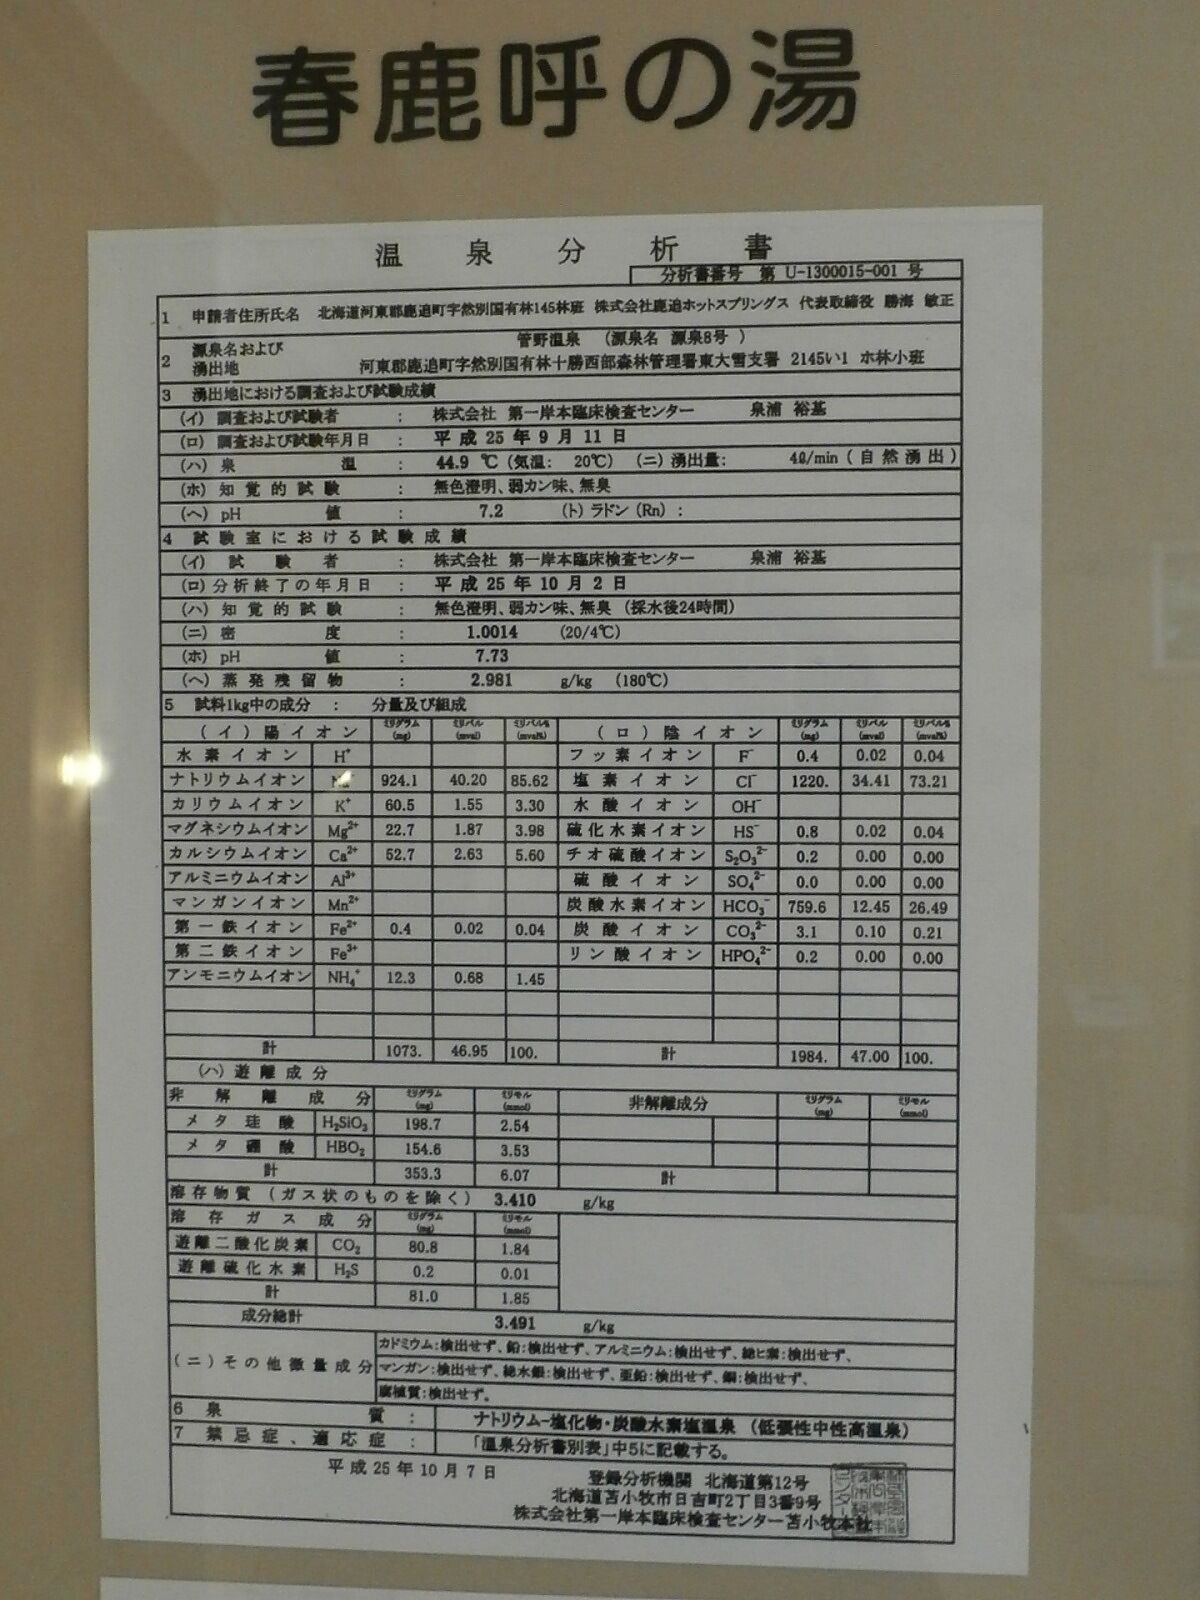 春鹿呼の湯
温泉分析書
分析書番号 第 U-1300015-001 号
1 申請者住所氏名 北海道河東郡鹿追町字然別国有林145林班 株式会社鹿追ホットスプリングス 代表取締役 勝海 敏正
2 源泉名および湧出地 管野温泉 (源泉名 源泉8号 )
河東郡鹿追町字然別国有林十勝西部森林管理署東大雪支署 2145い1 ホ林小班
3 湧出地における調査および試験成績
(イ) 調査および試験者 : 株式会社 第一岸本臨床検査センター 泉浦 裕基
(ロ) 調査および試験年月日 : 平成 25 年 9 月 11 日
(ハ) 泉温 : 44.9 ℃ (気温: 20℃) (ニ) 湧出量: 4ℓ/min ( 自然湧出 )
(ホ) 知覚的試験 : 無色澄明、弱カン味、無臭
(ヘ) pH 値 : 7.2 (ト) ラドン (Rn) :
4 試験室における試験成績
(イ) 試験者 : 株式会社 第一岸本臨床検査センター 泉浦 裕基
(ロ) 分析終了の年月日 : 平成 25 年 10 月 2 日
(ハ) 知覚的試験 : 無色澄明、弱カン味、無臭 (採水後24時間)
(ニ) 密度 : 1.0014 (20/4℃)
(ホ) pH 値 : 7.73
(ヘ) 蒸発残留物 : 2.981 g/kg (180℃)
5 試料1kg中の成分 : 分量及び組成
(イ) 陽イオン ミリグラム (mg) ミリバル (mval) ミリバル% (mval%) (ロ) 陰イオン ミリグラム (mg) ミリバル (mval) ミリバル% (mval%)
水素イオン H⁺ フッ素イオン F⁻ 0.4 0.02 0.04
ナトリウムイオン 924.1 40.20 85.62 塩素イオン Cl⁻ 1220. 34.41 73.21
カリウムイオン K⁺ 60.5 1.55 3.30 水酸イオン OH⁻
マグネシウムイオン Mg²⁺ 22.7 1.87 3.98 硫化水素イオン HS⁻ 0.8 0.02 0.04
カルシウムイオン Ca²⁺ 52.7 2.63 5.60 チオ硫酸イオン S₂O₃²⁻ 0.2 0.00 0.00
アルミニウムイオン Al³⁺ 硫酸イオン SO₄²⁻ 0.0 0.00 0.00
マンガンイオン Mn²⁺ 炭酸水素イオン HCO₃⁻ 759.6 12.45 26.49
第一鉄イオン Fe²⁺ 0.4 0.02 0.04 炭酸イオン CO₃²⁻ 3.1 0.10 0.21
第二鉄イオン Fe³⁺ リン酸イオン HPO₄²⁻ 0.2 0.00 0.00
アンモニウムイオン NH₄⁺ 12.3 0.68 1.45
計 1073. 46.95 100. 計 1984. 47.00 100.
(ハ) 遊離成分
非解離成分 ミリグラム (mg) ミリモル (mmol) 非解離成分 ミリグラム (mg) ミリモル (mmol)
メタ珪酸 H₂SiO₃ 198.7 2.54
メタ硼酸 HBO₂ 154.6 3.53
計 353.3 6.07 計
溶存物質 (ガス状のものを除く) 3.410 g/kg
溶存ガス成分 ミリグラム (mg) ミリモル (mmol)
遊離二酸化炭素 CO₂ 80.8 1.84
遊離硫化水素 H₂S 0.2 0.01
計 81.0 1.85
成分総計 3.491 g/kg
(ニ) その他微量成分 カドミウム:検出せず、鉛:検出せず、アルミニウム:検出せず、総ヒ素:検出せず、
マンガン:検出せず、総水銀:検出せず、亜鉛:検出せず、銅:検出せず、
腐植質:検出せず。
6 泉質 : ナトリウム-塩化物・炭酸水素塩温泉 (低張性中性高温泉)
7 禁忌症、適応症 : 「温泉分析書別表」中5に記載する。
平成 25 年 10 月 7 日
登録分析機関 北海道第12号
北海道苫小牧市日吉町2丁目3番9号
株式会社第一岸本臨床検査センター苫小牧本社